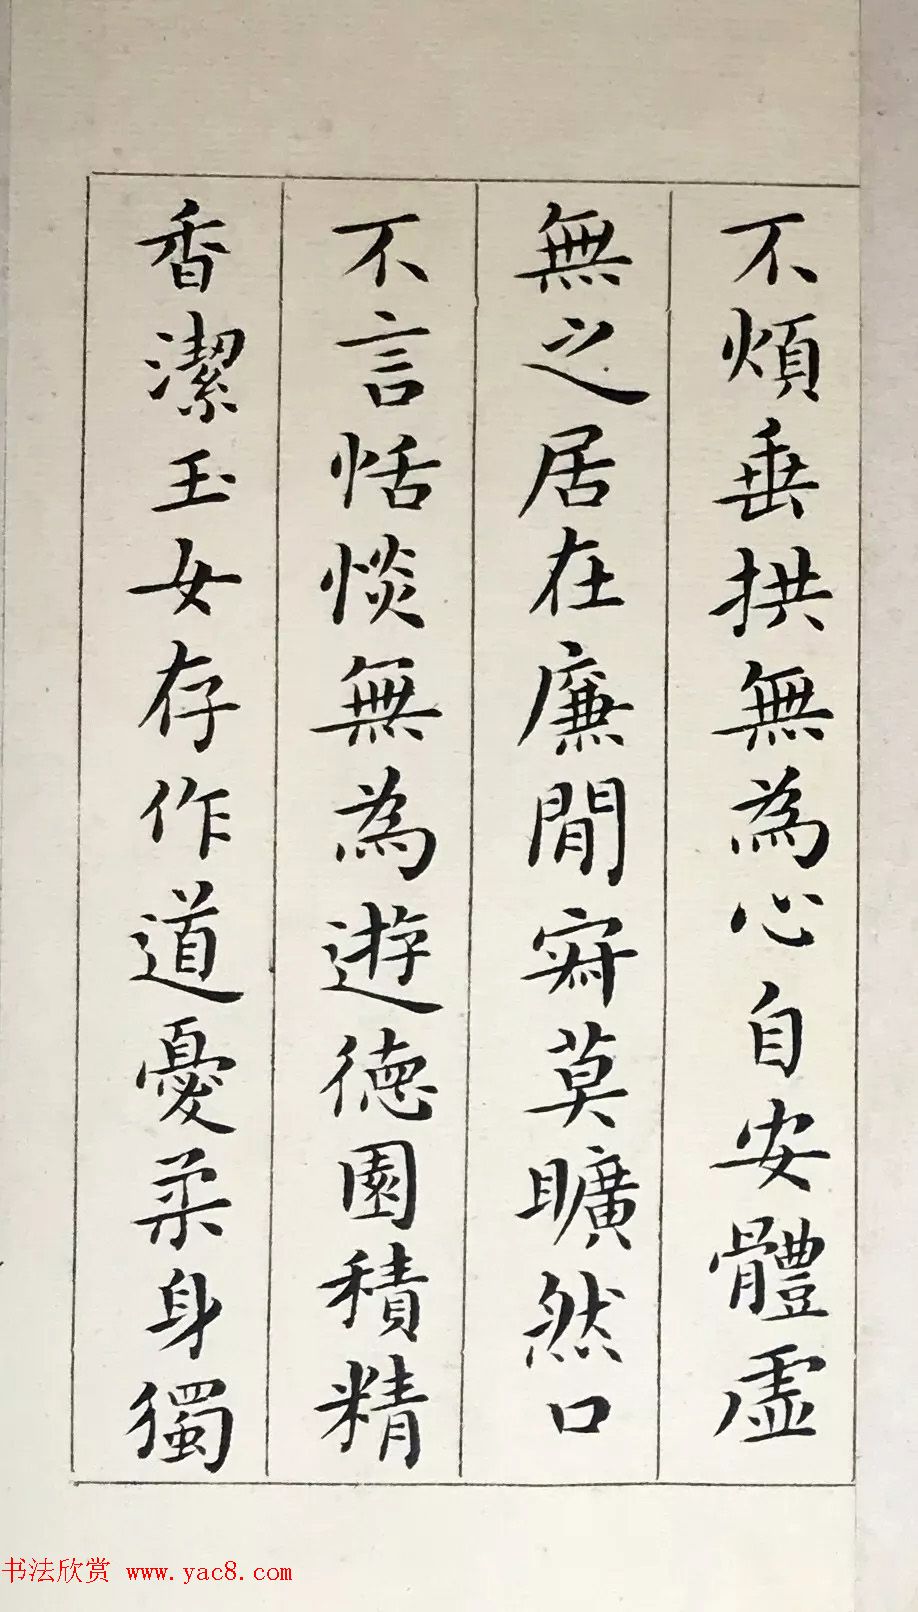 不煩垂拱無為心自安體虛
無之居在廉間寂莫曠然口
不言恬惔無為遊徳園積精
香潔玉女存作道憂柔身獨
书法欣赏 www.yac8.com